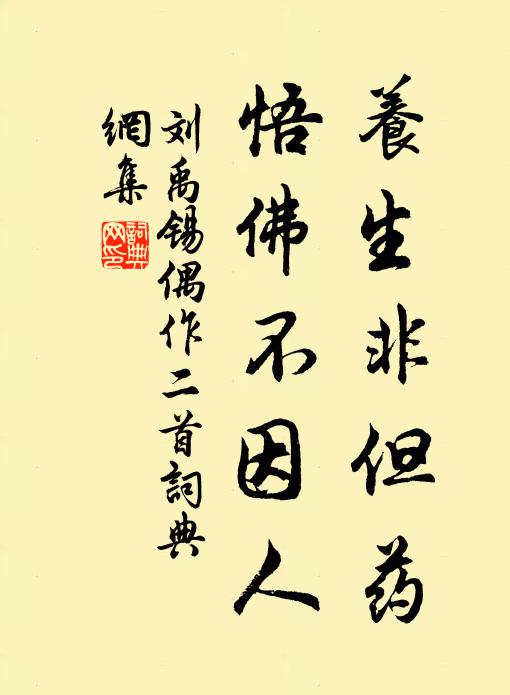 養生非但药
悟佛不因人
刘禹锡偶作二首詞典
網集
詞典网印